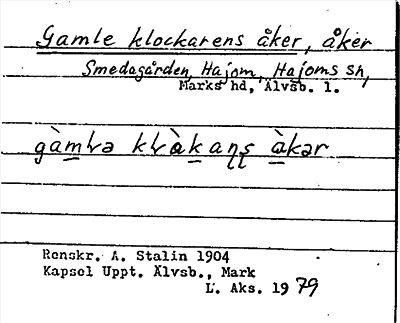 Gamle klockarens åker, åker
Smedagården, Hajom, Hajoms sn,
Marks hd, Älvsb. l.
Renskr. A. Stalin 1904
Kapsel Uppt. Älvsb., Mark
L. Aks. 1979